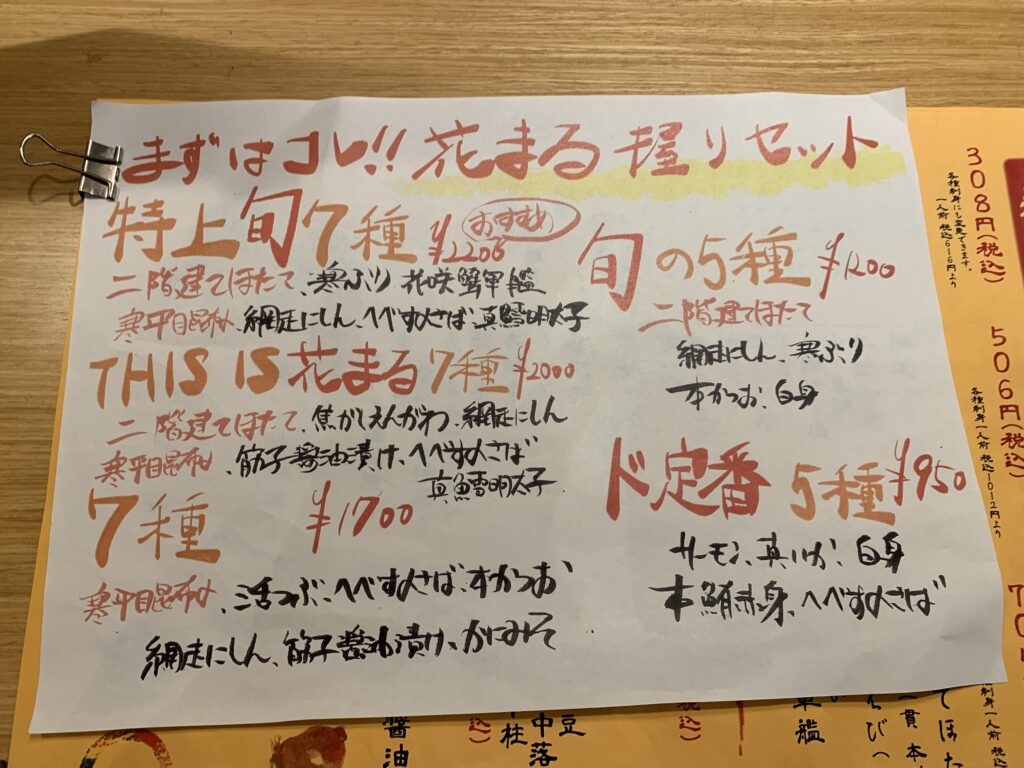 まずはコレ!! 花まる握りセット
特上旬7種 ¥2206 おすすめ
二階建てほたて、寒ぶり 花咲蟹軍艦
寒平目昆布〆、網走にしん、へべす〆さば 真鱈明太子
THIS IS 花まる7種 ¥2000
二階建てほたて、焦がしえんがわ、網走にしん
寒平目昆布〆、筋子醤油漬け、へべす〆さば
真鱈明太子
7種 ¥1700
寒平目昆布〆、活つぶ、へべす〆さば、本かつお
網走にしん、筋子醤油漬け、かにみそ
旬の5種 ¥1200
二階建てほたて
網走にしん、寒ぶり
本かつお、白身
ド定番 5種 ¥950
サーモン、真いか、白身
本鮪赤身、へべす〆さば
308円(税込)
各種刺身にも変更できます。
一人前 税込616円より
506円(税込)
各種刺身 一人前 税込1012円より
醤油
中落
豆
軍艦